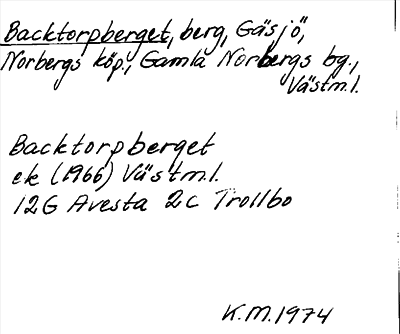 Backtorpberget, berg, Gäsjö,
Norbergs köp., Gamla Norbergs bg.,
Västm.l.
Backtorpberget
ek (1966) Västm.l.
12G Avesta 2C Trollbo
K.M.1974